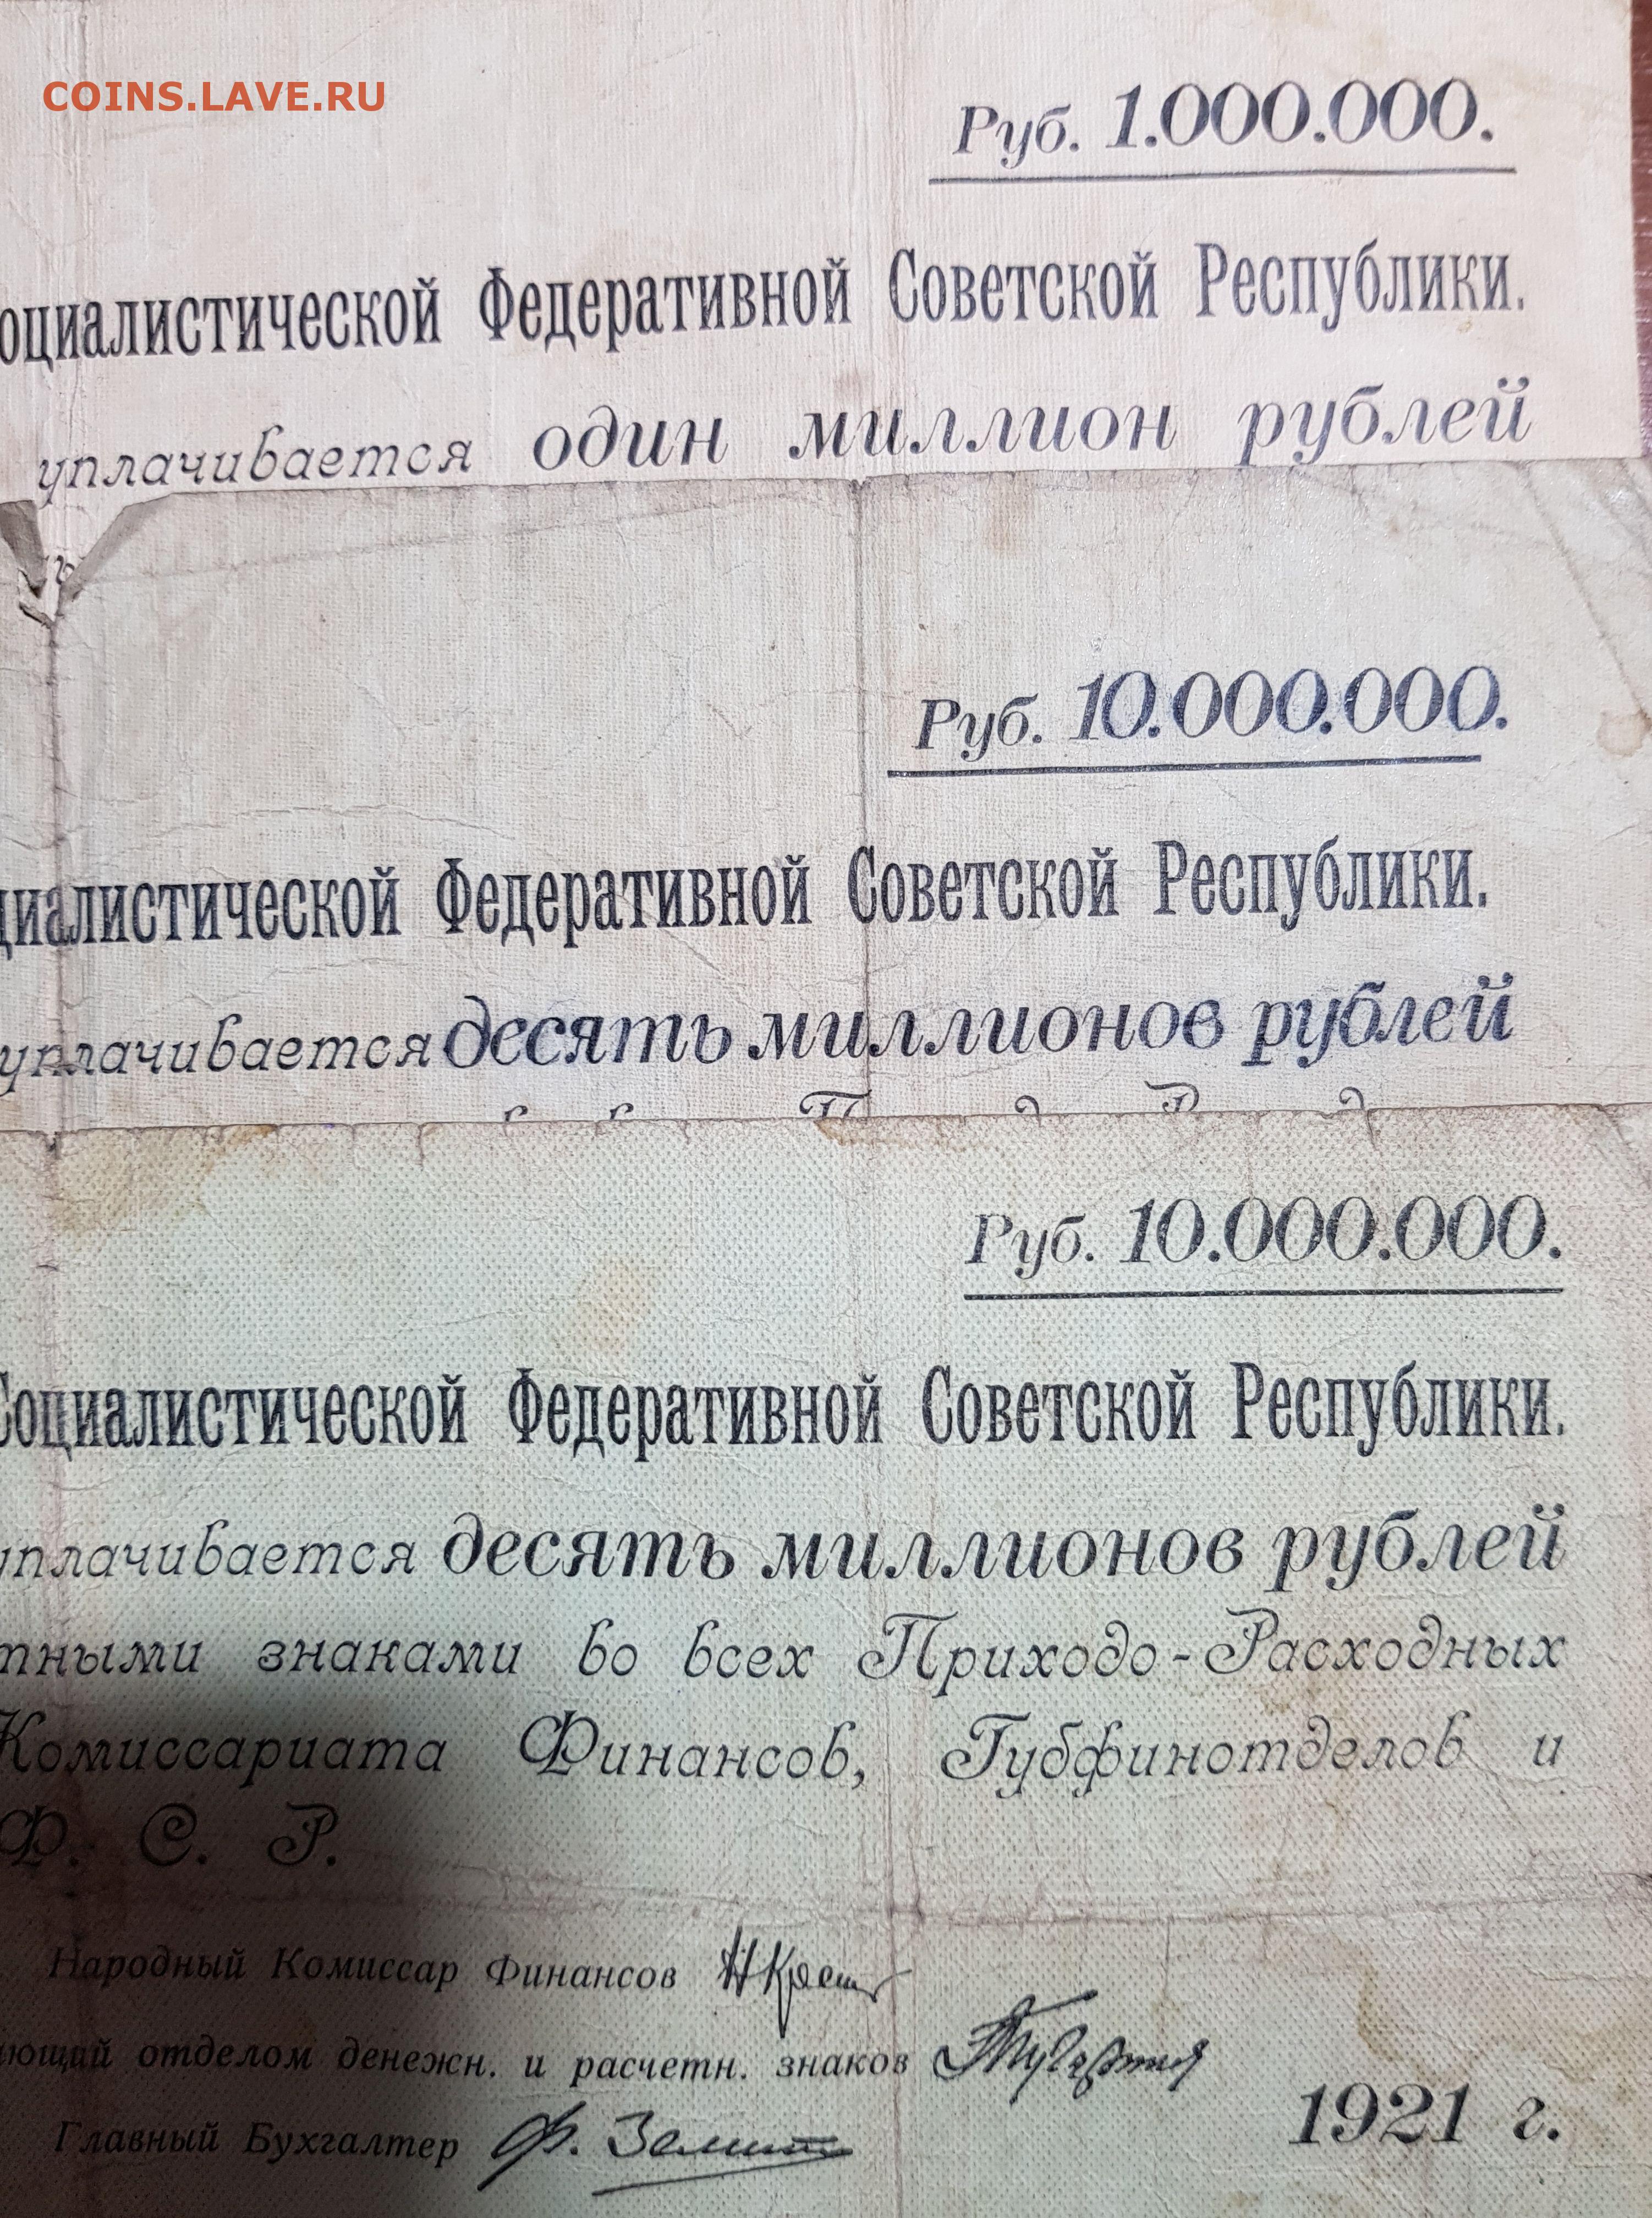 COINS.LAVE.RU
Руб. 1.000.000.
оциалистической Федеративной Советской Республики.
уплачивается один миллион рублей
Руб. 10.000.000.
циалистической Федеративной Советской Республики.
уплачивается десять миллионов рублей
Руб. 10.000.000.
Социалистической Федеративной Советской Республики.
уплачивается десять миллионов рублей
тными знаками во всех Приходо-Расходных
Комиссариата Финансов, Губфинотделов и
Ф. С. Р.
Народный Комиссар Финансов
ющий отделом денежн. и расчетн. знаков
Главный Бухгалтер
1921 г.